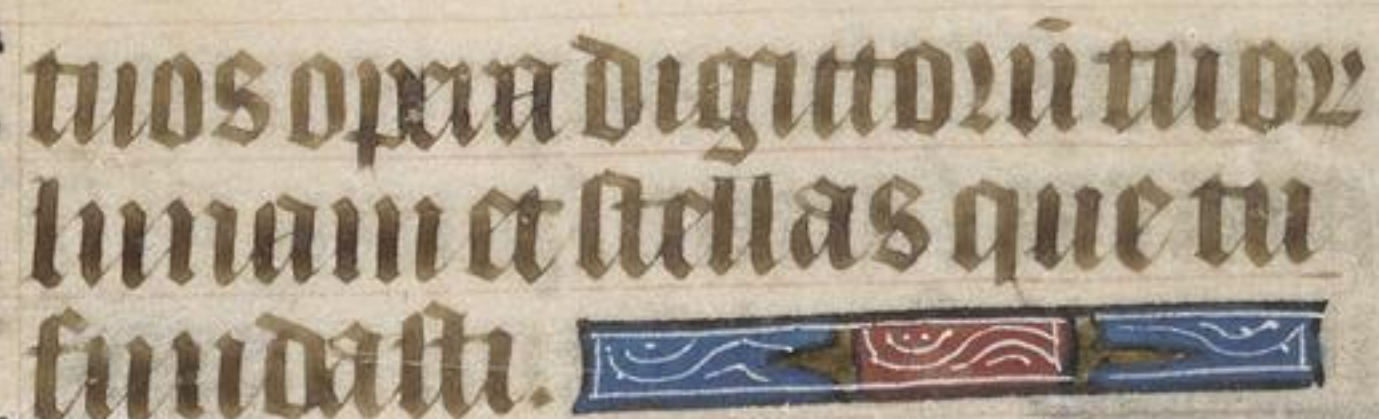 tuos opera digittorū tuoꝝ
lunam et stellas que tu
fundasti.